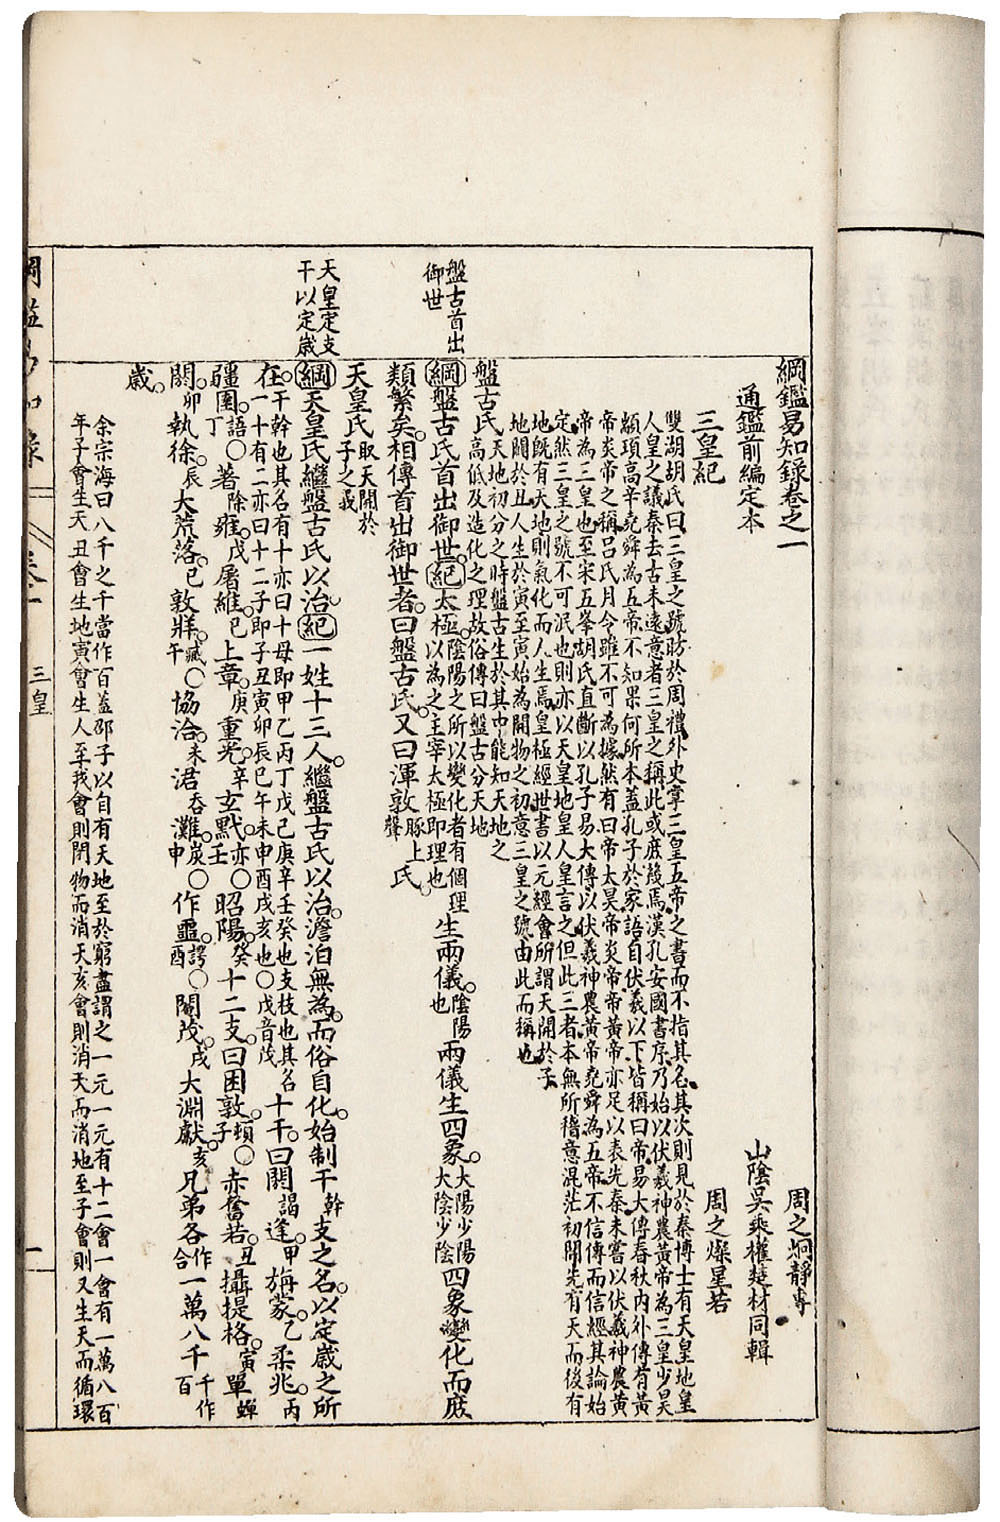 綱鑑易知錄卷之一
周之炯靜專
山陰吳乘權楚材同輯
周之燦星若
通鑑前編定本
三皇紀
雙湖胡氏曰三皇之號昉於周禮外史掌三皇五帝之書而不指其名其次則見於秦博士有天皇地皇
人皇之議秦去古未遠意者三皇之稱此或庶幾焉漢孔安國書序乃始以伏羲神農黃帝為三皇少昊
顓頊高辛堯舜為五帝不知果何所本蓋孔子於家語自伏羲以下皆稱曰帝易大傳春秋內外傳有黃
帝炎帝之稱呂氏月令雖不可為據然有曰帝太昊帝炎帝帝黃帝亦足以表先秦未嘗以伏羲神農黃
帝為三皇也至宋五峯胡氏直斷以孔子易大傳以伏羲神農黃帝堯舜為五帝不信傳而信經其論始
定然三皇之號不可泯也則亦以天皇地皇人皇言之但此三者本無所稽意混茫初開先有天而後有
地既有天地則氣化而人生焉皇極經世書以元經會所謂天開於子
地闢於丑人生於寅至寅始為開物之初意三皇之號由此而稱也
盤古氏天地初分之時盤古生於其中能知天地之
高低及造化之理故俗傳曰盤古分天地
盤古首出
御世
綱盤古氏首出御世紀太極陰陽之所以變化者有個理
以為之主宰太極即理也生兩儀陰陽
也兩儀生四象大陽少陽
大陰少陰四象變化而庶
類繁矣相傳首出御世者曰盤古氏又曰渾敦豚上
聲氏
天皇氏取天開於
子之義
天皇定支
干以定歲
綱天皇氏繼盤古氏以治紀一姓十三人繼盤古氏以治澹泊無為而俗自化始制干幹支之名以定歲之所
在干幹也其名有十亦曰十母即甲乙丙丁戊己庚辛壬癸也支枝也其名
一十有二亦曰十二子即子丑寅卯辰巳午未申酉戌亥也○戊音茂十干曰閼謁逢甲旃蒙乙柔兆丙
疆圉語○
丁著除雍戊屠維己上章庚重光辛玄黓亦○
壬昭陽癸十二支曰困敦頓○
子赤奮若丑攝提格寅單蟬
閼卯執徐辰大荒落巳敦牂臧○
午協洽未涒吞灘炭○
申作噩諤○
酉閹茂戌大淵獻亥兄弟各作
合一萬八千千作
百
歲
余宗海曰八千之千當作百蓋邵子以自有天地至於窮盡謂之一元一元有十二會一會有一萬八百
年子會生天丑會生地寅會生人至戌會則閉物而消天亥會則消天而消地至子會則又生天而循環
綱鑑易知錄
卷一
三皇
一